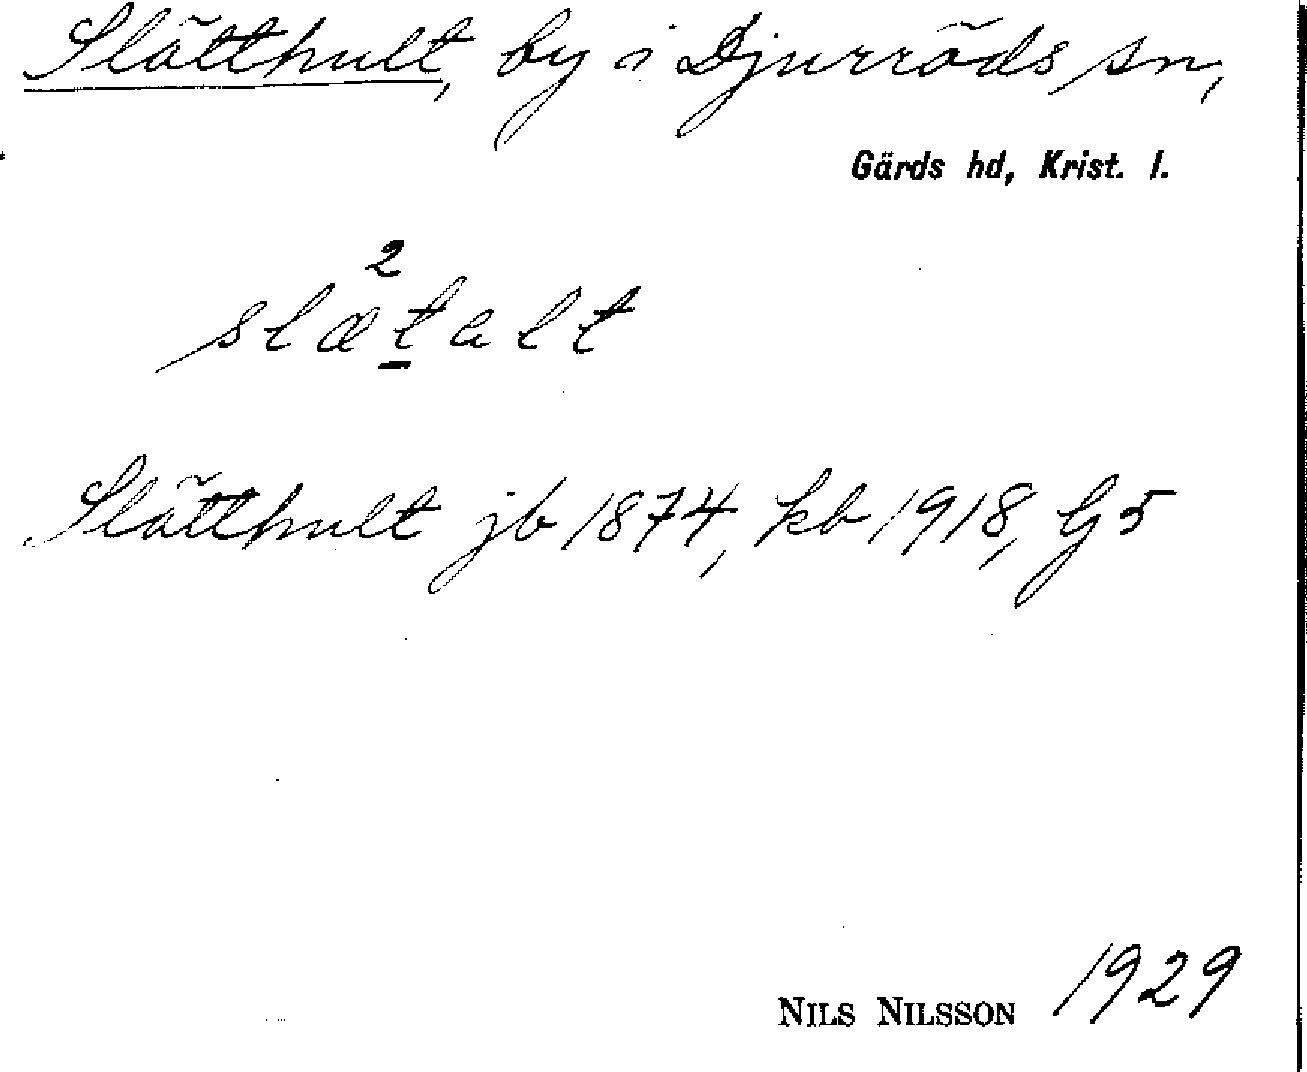 Slätthult, by i Djurröds sn,
Gärds hd, Krist. l.
2
slætalt
Slätthult jb 1874, kb 1918, G5
NILS NILSSON 1929